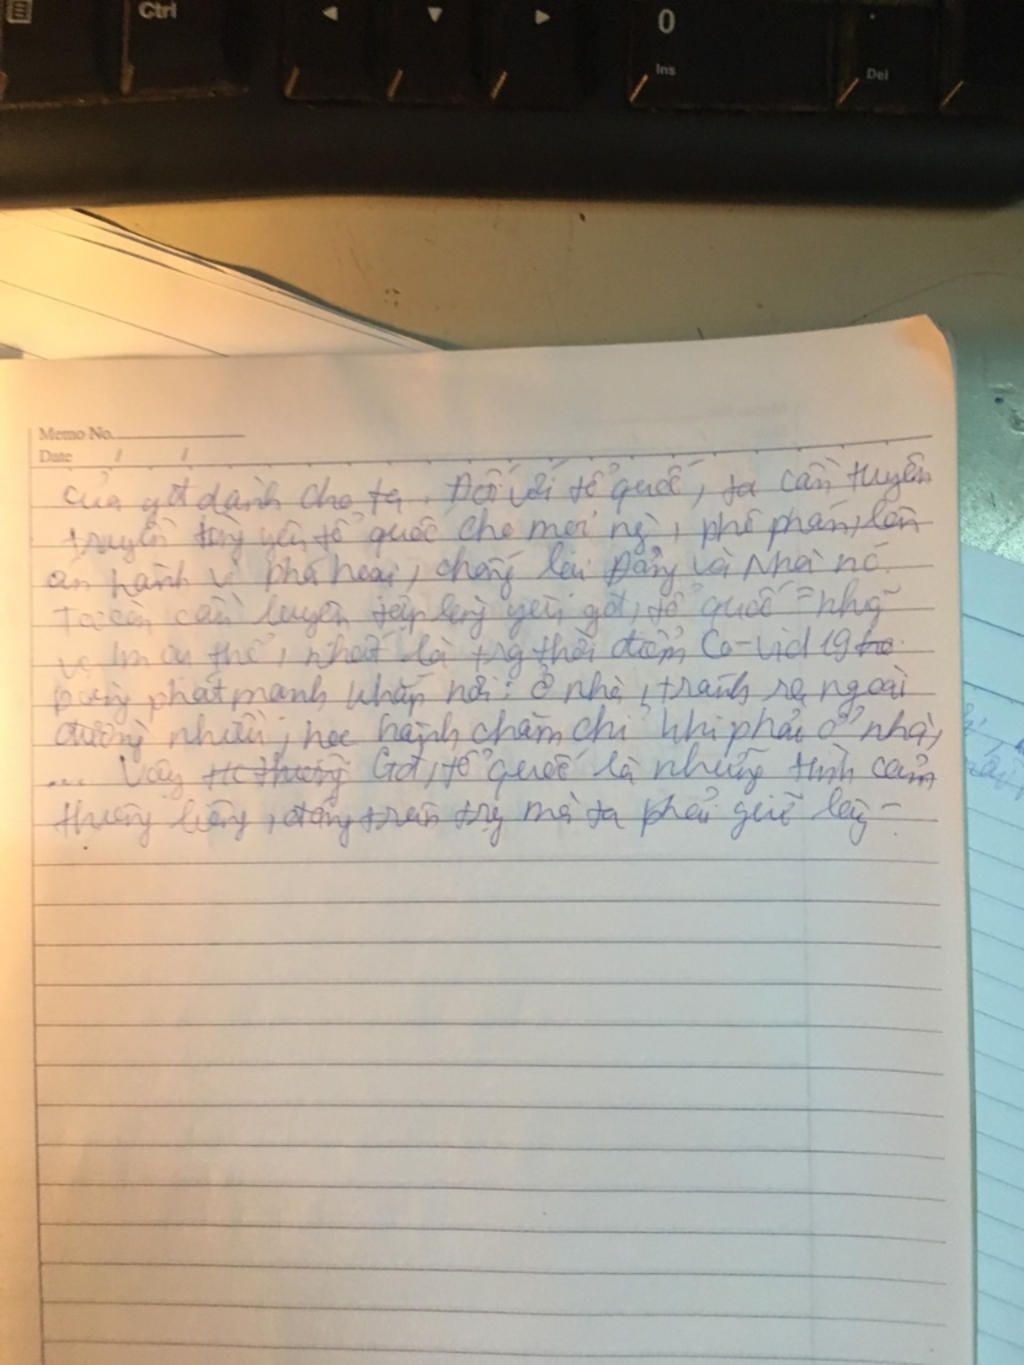 Ctrl
0
Ins
.
Del
Memo No.
Date / /
của gđ dành cho ta. Đối với tổ quốc, ta cần tuyên
truyền lòng yêu tổ quốc cho mọi ng', phê phán, lên
án hành vi phá hoại, chống lại Đảng và Nhà nc.
cần luyện tập lòng yêu gđ, tổ quốc = nhg~
thể, nhất là trg thời điểm Co-vid 19
bùng phát mạnh khắp nơi: ở nhà, tránh ra ngoài
đường nhiều, học hành chăm chỉ khi phải ở nhà,
... Vậy Gđ, tổ quốc là những tình cảm
thiêng liêng, đáng trân trg mà ta phải giữ lấy